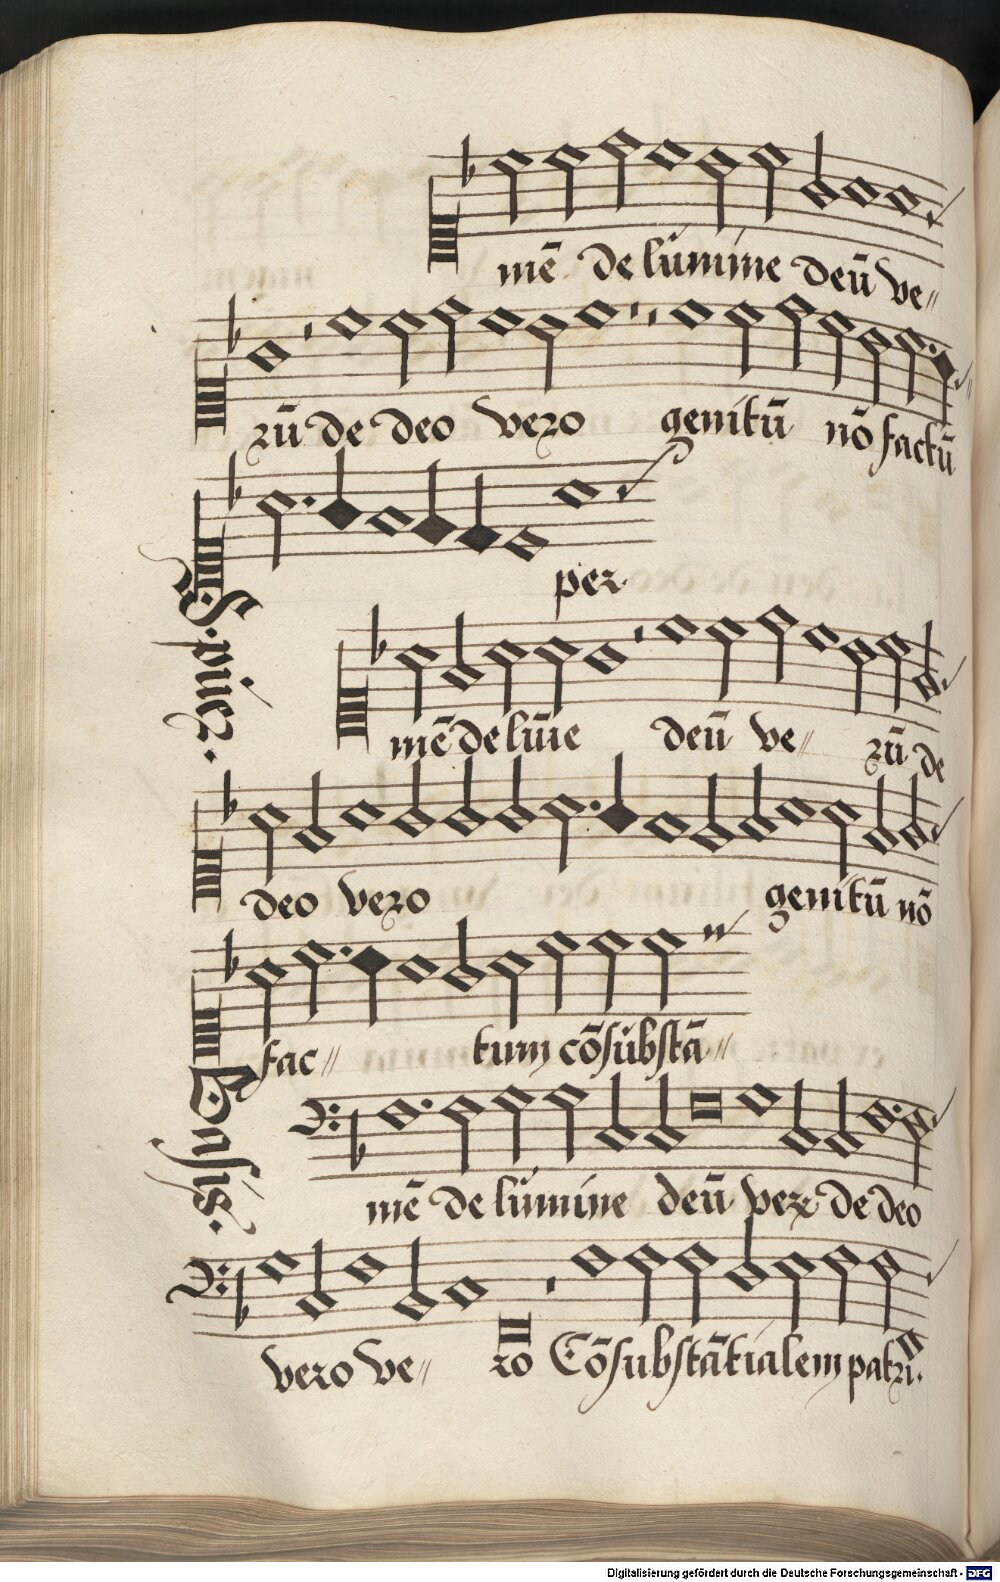 mē de lumine deū ve〃
rū de deo vero genitū nō factū
per
S. puer.
mē de lūīe deū ve〃 rū de
deo vero genitū nō
fac〃 tum cōsubstā〃
Basis.
mē de lumine deū ver de deo
vero ve〃 ro Cōsubstātialem patri.
Digitalisierung gefördert durch die Deutsche Forschungsgemeinschaft - DFG